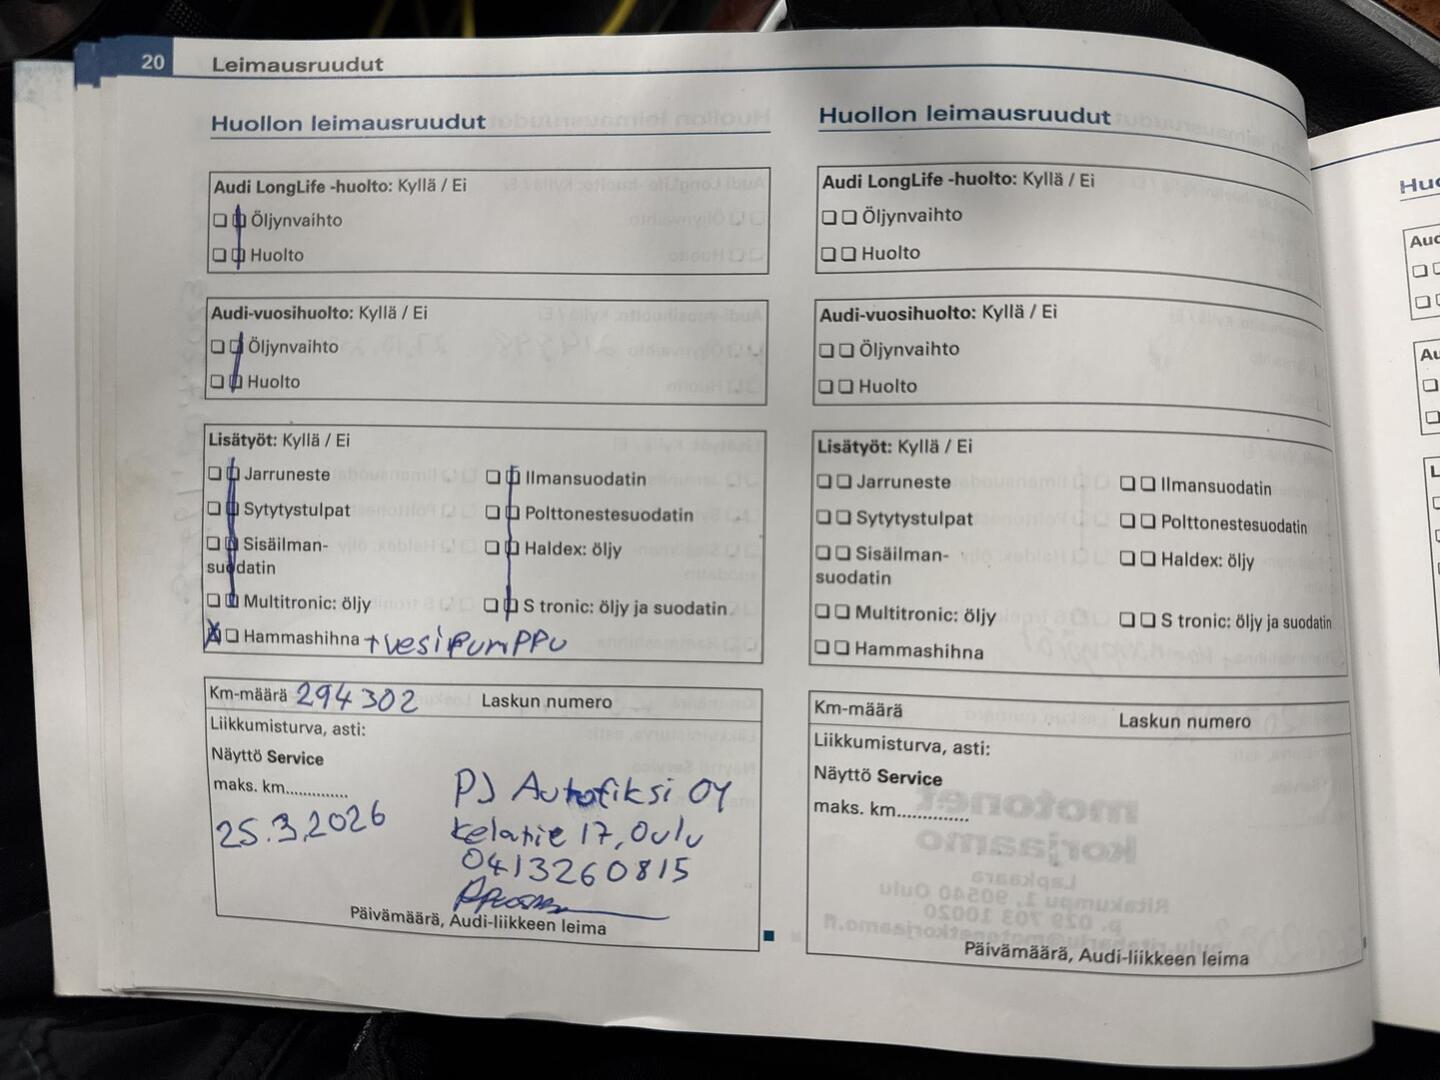 20 Leimausruudut
Huollon leimausruudut
Audi LongLife -huolto: Kyllä / Ei
Öljynvaihto
Huolto
Audi-vuosihuolto: Kyllä / Ei
Öljynvaihto
Huolto
Lisätyöt: Kyllä / Ei
Jarruneste
Sytytystulpat
Sisäilman-
suodatin
Multitronic: öljy
Hammashihna + vesipumppu
Ilmansuodatin
Polttonestesuodatin
Haldex: öljy
S tronic: öljy ja suodatin
Km-määrä 294302 Laskun numero
Liikkumisturva, asti:
Näyttö Service
maks. km..............
25.3.2026
PJ Autofiksi OY
Kelatie 17, Oulu
0413260815
Päivämäärä, Audi-liikkeen leima
Huollon leimausruudut
Audi LongLife -huolto: Kyllä / Ei
Öljynvaihto
Huolto
Audi-vuosihuolto: Kyllä / Ei
Öljynvaihto
Huolto
Lisätyöt: Kyllä / Ei
Jarruneste
Sytytystulpat
Sisäilman-
suodatin
Multitronic: öljy
Hammashihna
Ilmansuodatin
Polttonestesuodatin
Haldex: öljy
S tronic: öljy ja suodatin
Km-määrä Laskun numero
Liikkumisturva, asti:
Näyttö Service
maks. km..............
Päivämäärä, Audi-liikkeen leima